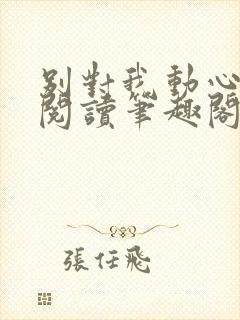 別對我動心
閱讀筆趣閣
張任飛